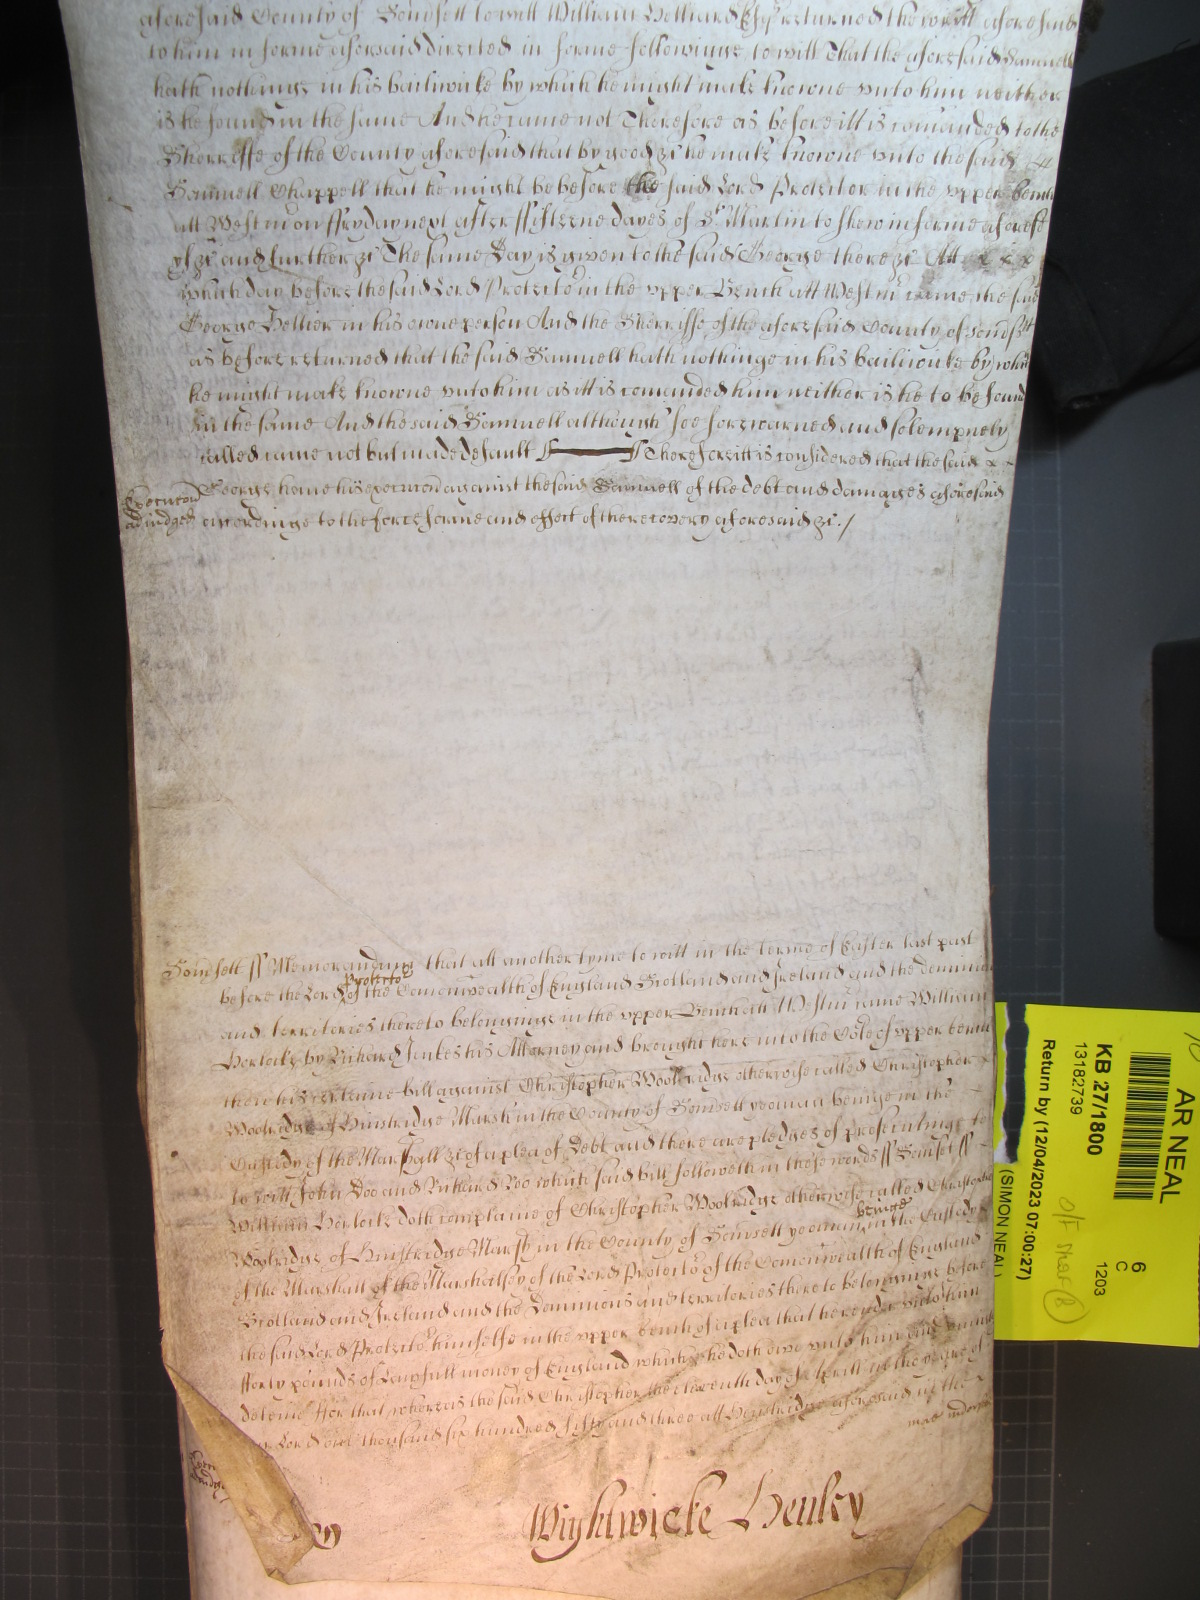 aforesaid County of Somsett to witt William Helliard Esqr returned the writt aforesaid
to him in forme aforesaid directed in forme followinge, to witt That the aforesaid Samuell
hath nothinge in his bailiwicke by which he might make knowne unto him neither
is he found in the same And he came not Therefore as before itt is comanded to the
Sherriffe of the County aforesaid that by good &c he make knowne unto the said
Samuell Chappell that he might be before the said Lord Protector in the upper bench
att Westm on ffryday next after ffifteene dayes of St Martin to shew in forme aforesd
yf &c and further &c The same Day is given to the said George there &c Att x x x
which day before the said Lord Protector in the upper Bench att Westmr came the said
George Hellier in his owne person And the Sherriffe of the aforesaid County of Somsett
as before returned that the said Samuell hath nothinge in his bailiwicke by which
he might make knowne unto him as itt is comanded him neither is he to be found
in the same And the said Samuell although soe forewarned and solempnely
called came not but made default Therefore itt is considered that the said x x
George have his execucon against the said Samuell of the debt and damages aforesaid
Execucon adiudged
accordinge to the force forme and effect of the recovery aforesaid &c./
Somsett ss Memorandum that att another tyme to witt in the terme of Easter last past
before the Lord Protector of the Comonwealth of England Scotland and Ireland and the dominions
and territories thereto belonginge in the upper Bench att Westmr came William
Horlocke by Richard Jeukes his Attorney and brought here into the Cort of upper bench
there his certaine bill against Christopher Woolridge otherwise called Christopher x
Woolridge of Henstridge Marsh in the County of Somsett yeoman beinge in the
Custody of the Marshall &c of a plea of Debt and there are pledges of prosecutinge to
to witt John Doo and Richard Roo which said bill followeth in these words ss Somset ss
William Horlocke doth complaine of Christopher Woolridge otherwise called Christopher
Woolridge of Henstridge Marsh in the County of Somsett yeoman beinge in the Custody
of the Marshall of the Marshalsey of the Lord Protector of the Comonwealth of England
Scotland and Ireland and the Dominions and territories thereto belonginge before
the said Lord Protector himselfe in the upper bench of a plea that he render unto him
fforty pounds of lawfull money of England which he doth owe unto him and uniustly
deteine ffor that whereas the said Christopher the eleaventh day of Aprill in the yeare of
Lord one thousand six hundred fifty and three att Henstridge aforesaid in the
Wightwicke Henley
AR NEAL
6
C
1203
KB 27/1800
13182739
Return by (12/04/2023 07:00:27)
(SIMON NEAL)